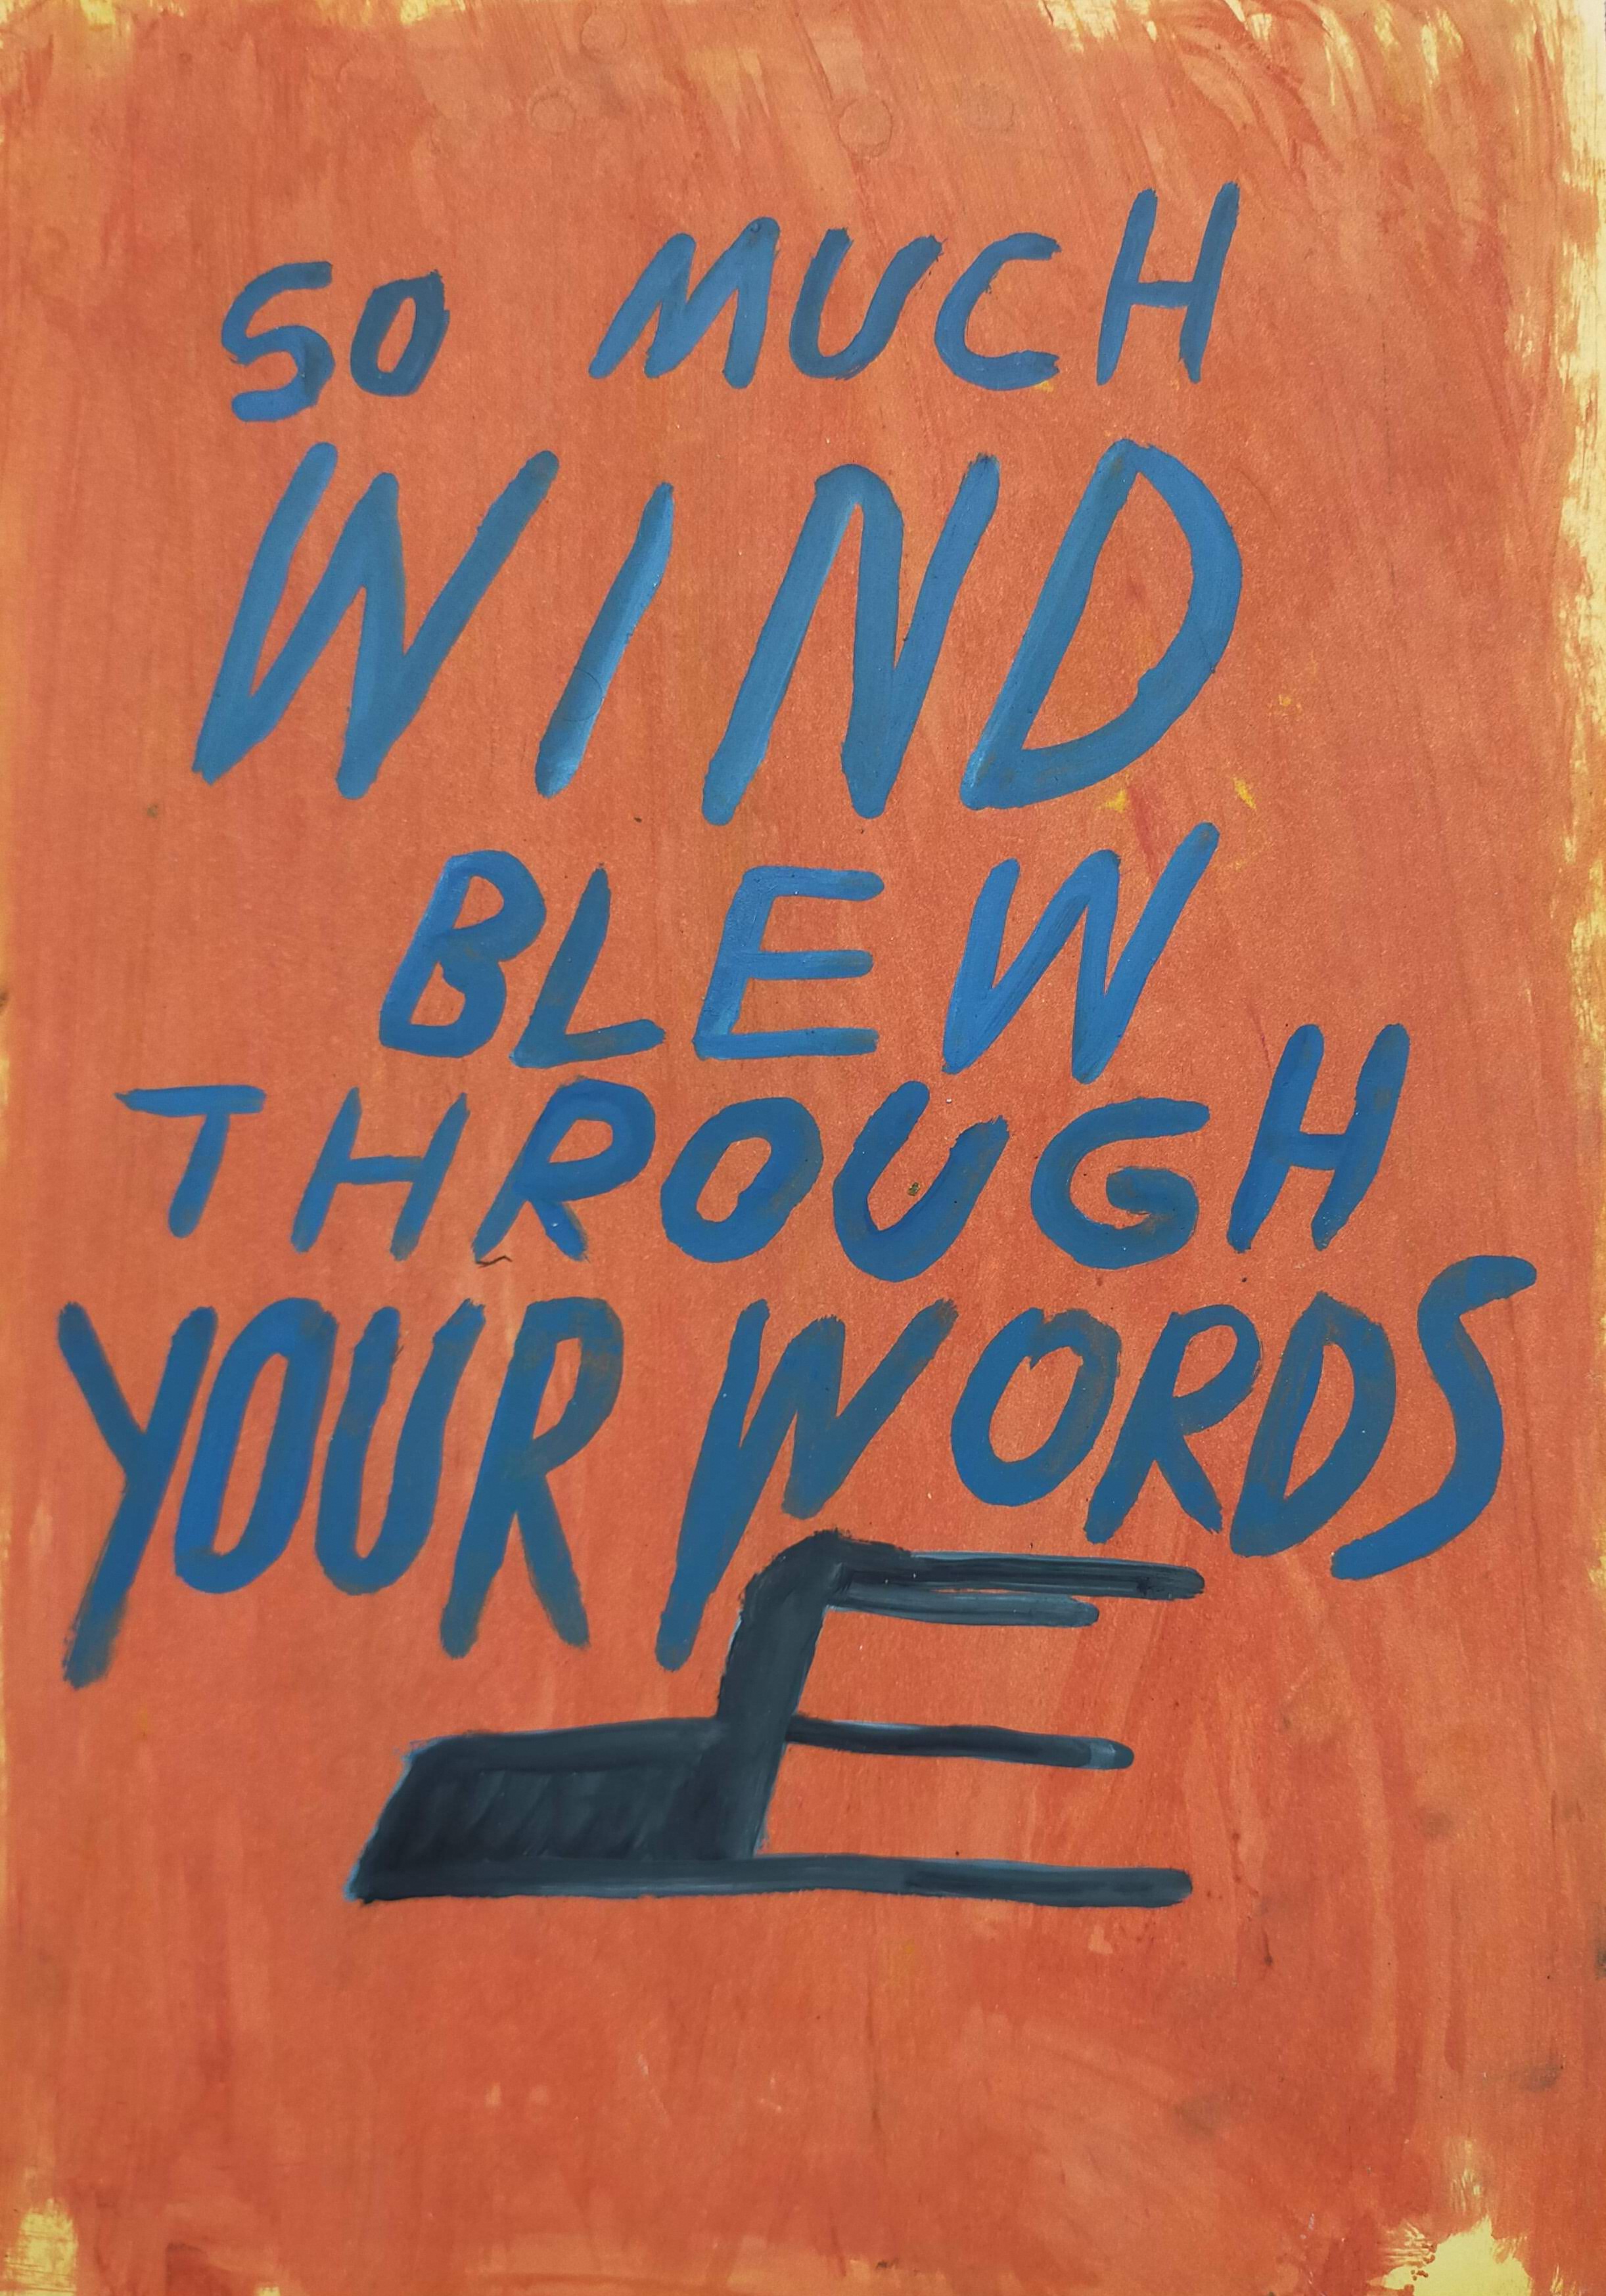 SO MUCH
WIND
BLEW
THROUGH
YOUR WORDS